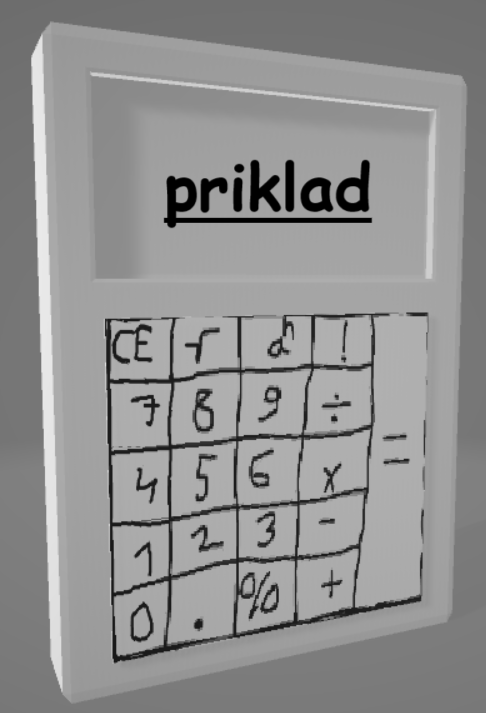 priklad
CE r aⁿ !
7 8 9 ÷
4 5 6 x =
1 2 3 -
0 . % +